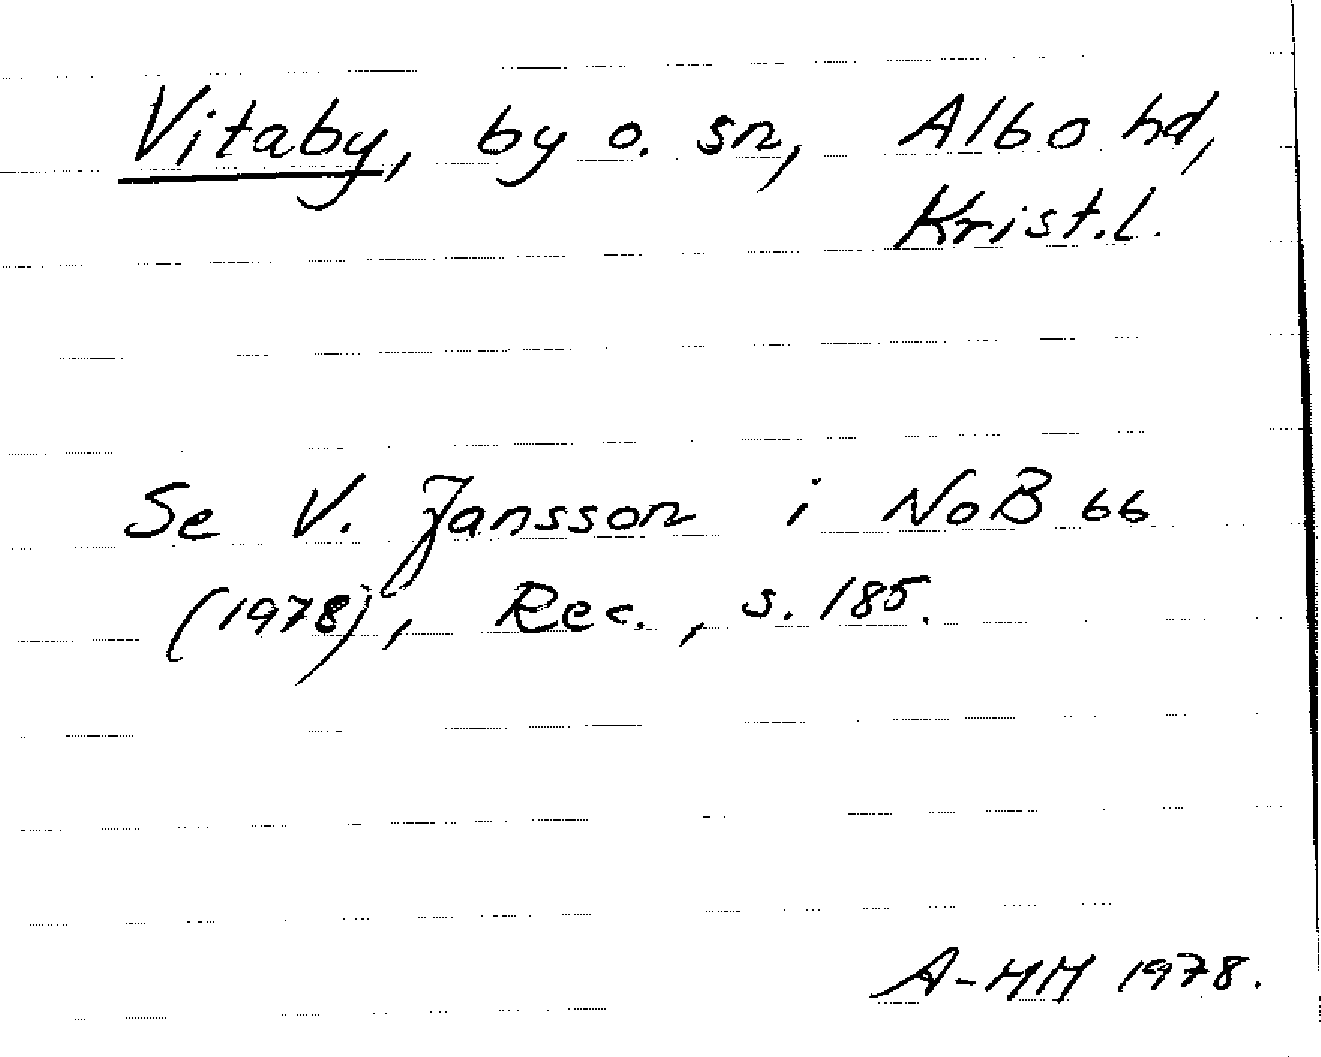 Vitaby, by o. sn, Albo hd,
Krist.l.
Se V. Jansson i NoB 66
(1978), Rec., s. 185.
A-HH 1978.